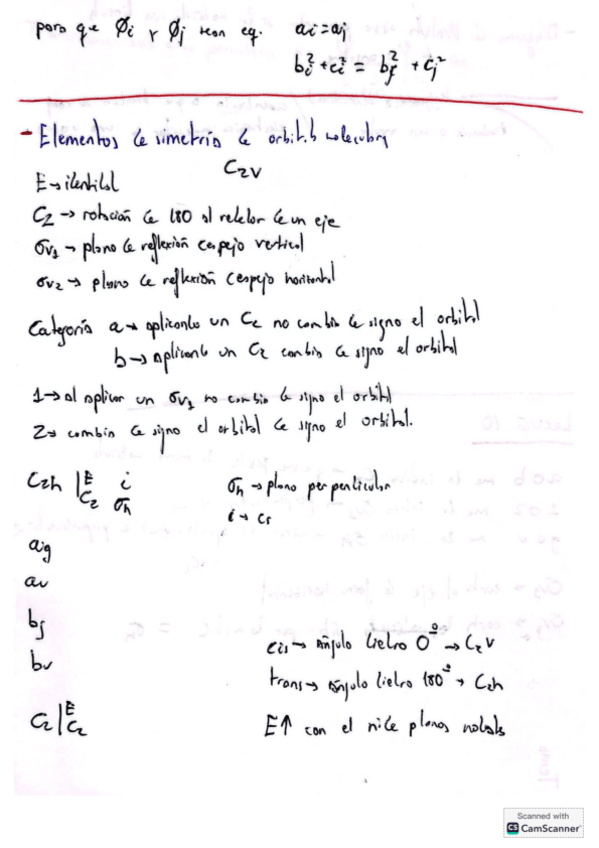 para que Øi y Øj sean eq. ai = aj
bi² + ci² = bj² + cj²
- Elementos de simetría de orbital molecular
C2V
E → identidad
C2 → rotación de 180 al rededor de un eje
σv1 → plano de reflexión (espejo vertical
σv2 → plano de reflexión (espejo horizontal
Categoría a → aplicando un C2 no cambia de signo el orbital
b → aplicando un C2 cambia de signo el orbital
1 → al aplicar un σv1 no cambia de signo el orbital
2 → cambia de signo el orbital de signo el orbital.
C2h | E i σh → plano perpendicular
C2 σh i → cs
ag
au
bg
bu cis → ángulo diedro 0º → C2V
trans → ángulo diedro 180º → C2h
C2 | E C2 E↑ con el nº de planos nodales
Scanned with
CS CamScanner